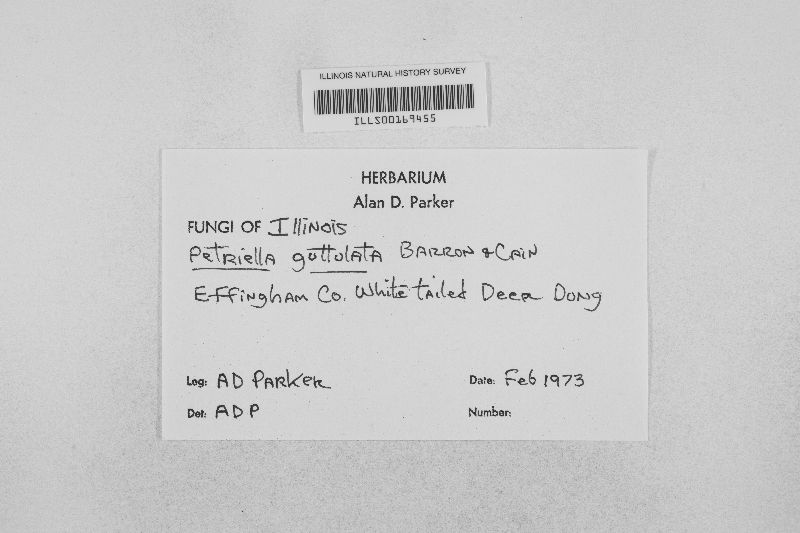 ILLINOIS NATURAL HISTORY SURVEY
ILLS00169455
HERBARIUM
Alan D. Parker
FUNGI OF Illinois
Petriella guttulata Barron & Cain
Effingham Co. White tailed Deer Dung
Leg: AD Parker
Date: Feb 1973
Det: ADP
Number: